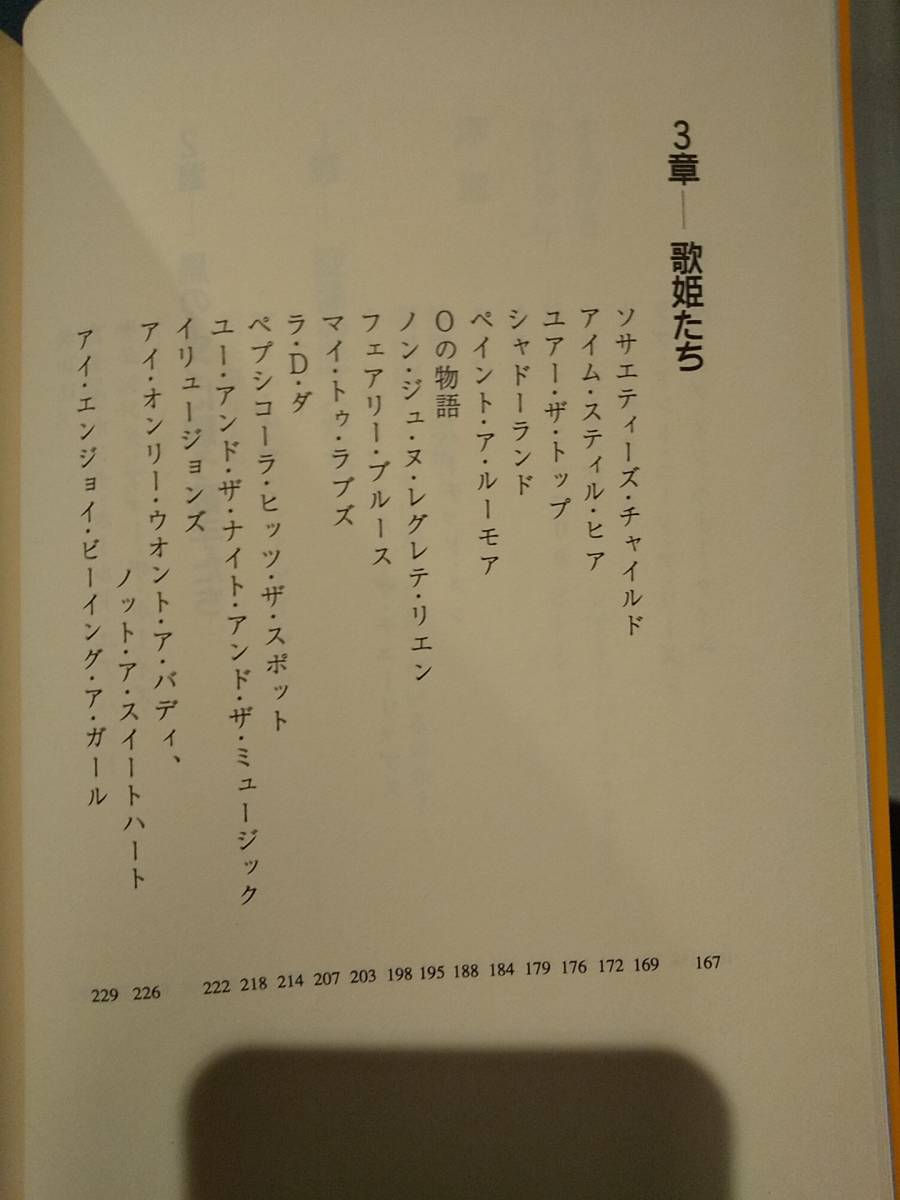 3章―歌姫たち 167
ソサエティーズ・チャイルド 169
アイム・スティル・ヒア 172
ユアー・ザ・トップ 176
シャドーランド 179
ペイント・ア・ルーモア 184
Oの物語 188
ノン・ジュ・ヌ・レグレテ・リエン 195
フェアリー・ブルース 198
マイ・トゥ・ラブズ 203
ラ・D・ダ 207
ペプシコーラ・ヒッツ・ザ・スポット 214
ユー・アンド・ザ・ナイト・アンド・ザ・ミュージック 218
イリュージョンズ 222
アイ・オンリー・ウオント・ア・バディ、
ノット・ア・スイートハート 226
アイ・エンジョイ・ビーイング・ア・ガール 229